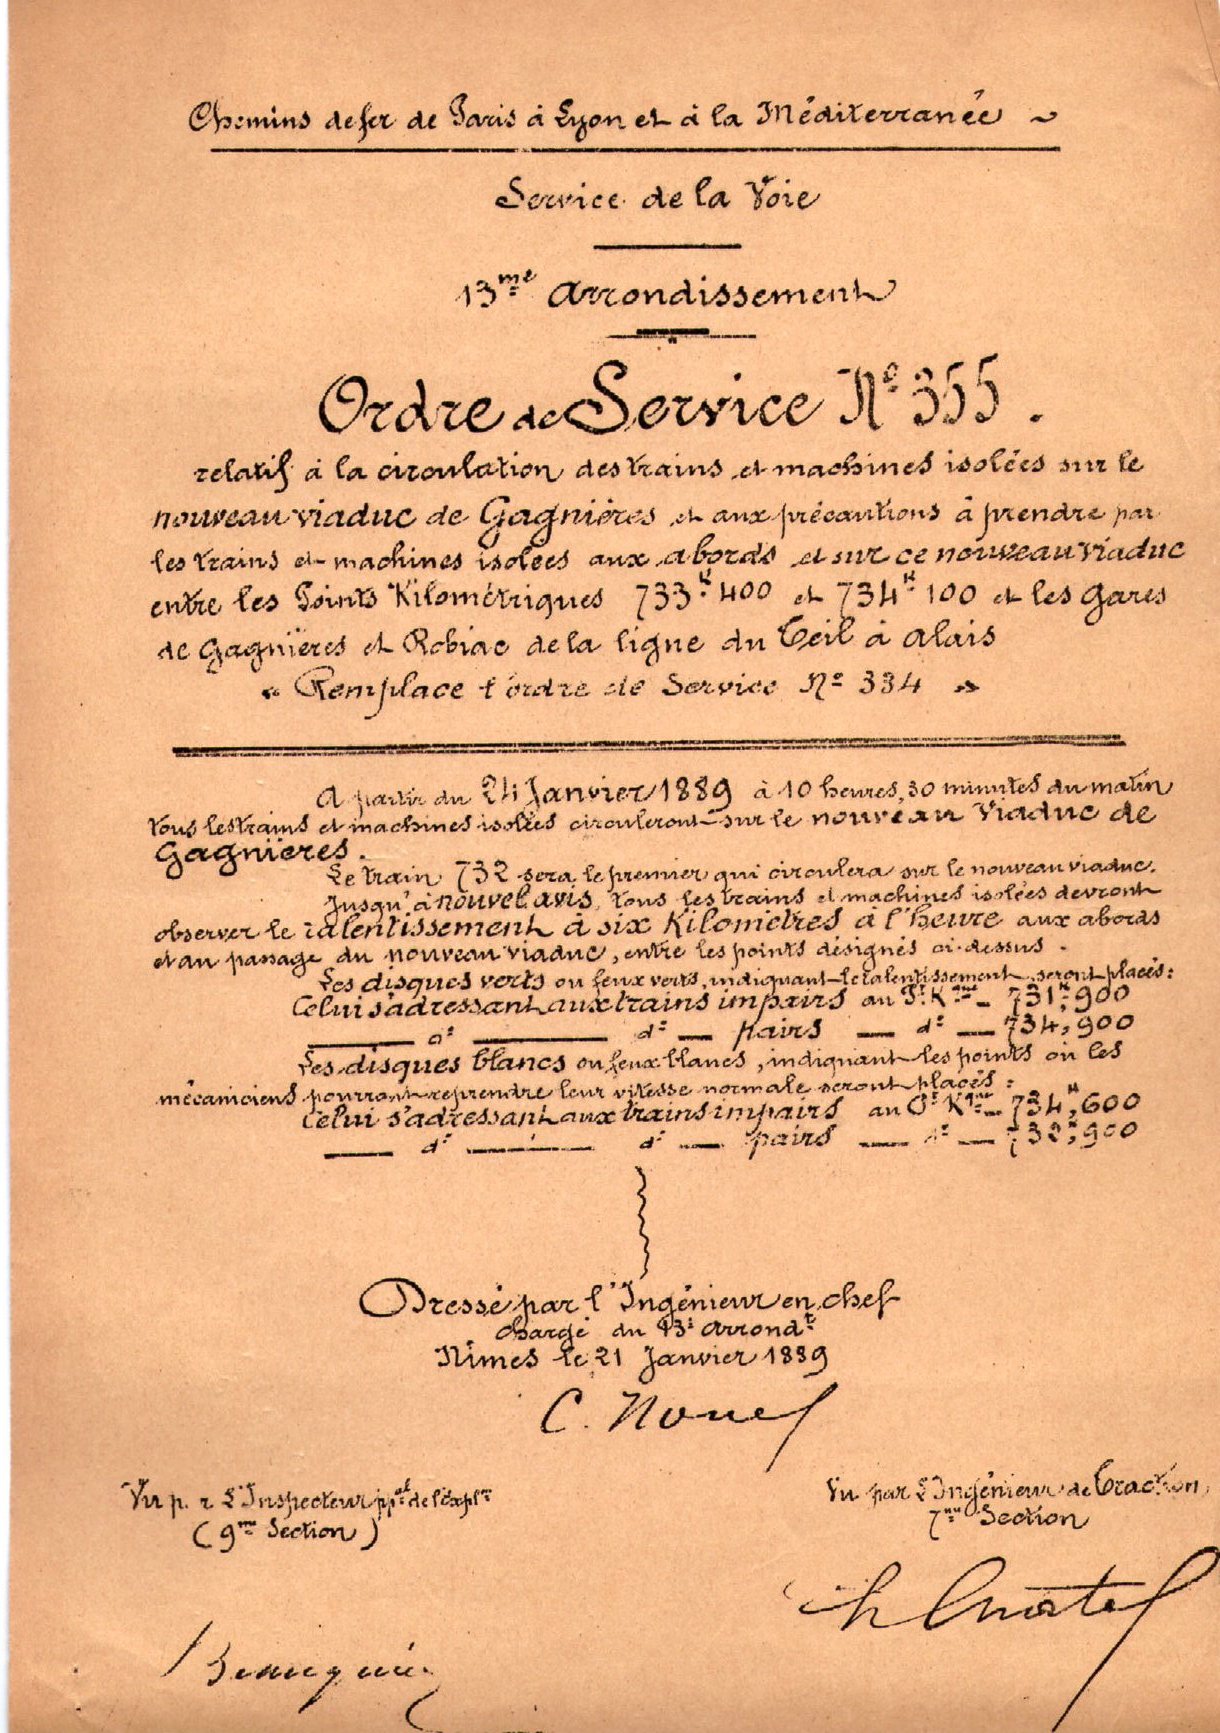 Chemins de fer de Paris à Lyon et à la Méditerranée ~
Service de la Voie
13me Arrondissement
Ordre de Service No 355.
relatif à la circulation des trains et machines isolées sur le
nouveau viaduc de Gagnières et aux précautions à prendre par
les trains et machines isolées aux abords et sur ce nouveau viaduc
entre les Points Kilométriques 733k.400 et 734k.100 et les Gares
de Gagnières et Robiac de la ligne du Teil à Alais
« Remplace l'ordre de Service No 334 »
A partir du 24 Janvier 1889 à 10 heures, 30 minutes du matin
tous les trains et machines isolées circuleront sur le nouveau Viaduc de
Gagnières.
Le train 732 sera le premier qui circulera sur le nouveau viaduc.
Jusqu'à nouvel avis, tous les trains et machines isolées devront
observer le ralentissement à six Kilomètres à l'heure aux abords
et au passage du nouveau viaduc, entre les points désignés ci-dessus.
Les disques verts ou feux verts, indiquant le ralentissement, seront placés:
Celui s'adressant aux trains impairs au Pt Kque — 731k,900
— do — do — pairs — do — 734,900
Les disques blancs ou feux blancs, indiquant les points où les
mécaniciens pourront reprendre leur vitesse normale seront placés:
Celui s'adressant aux trains impairs au Pt Kque — 734k,600
— do — do — pairs — do — 732k,900
Dressé par l'Ingénieur en chef
chargé du 13e Arrondt
Nîmes le 21 Janvier 1889
C. Nouel
Vu p. r L'Inspecteur ppal de l'Explon
(9me Section)
Vu par L'Ingénieur de Traction
7me Section